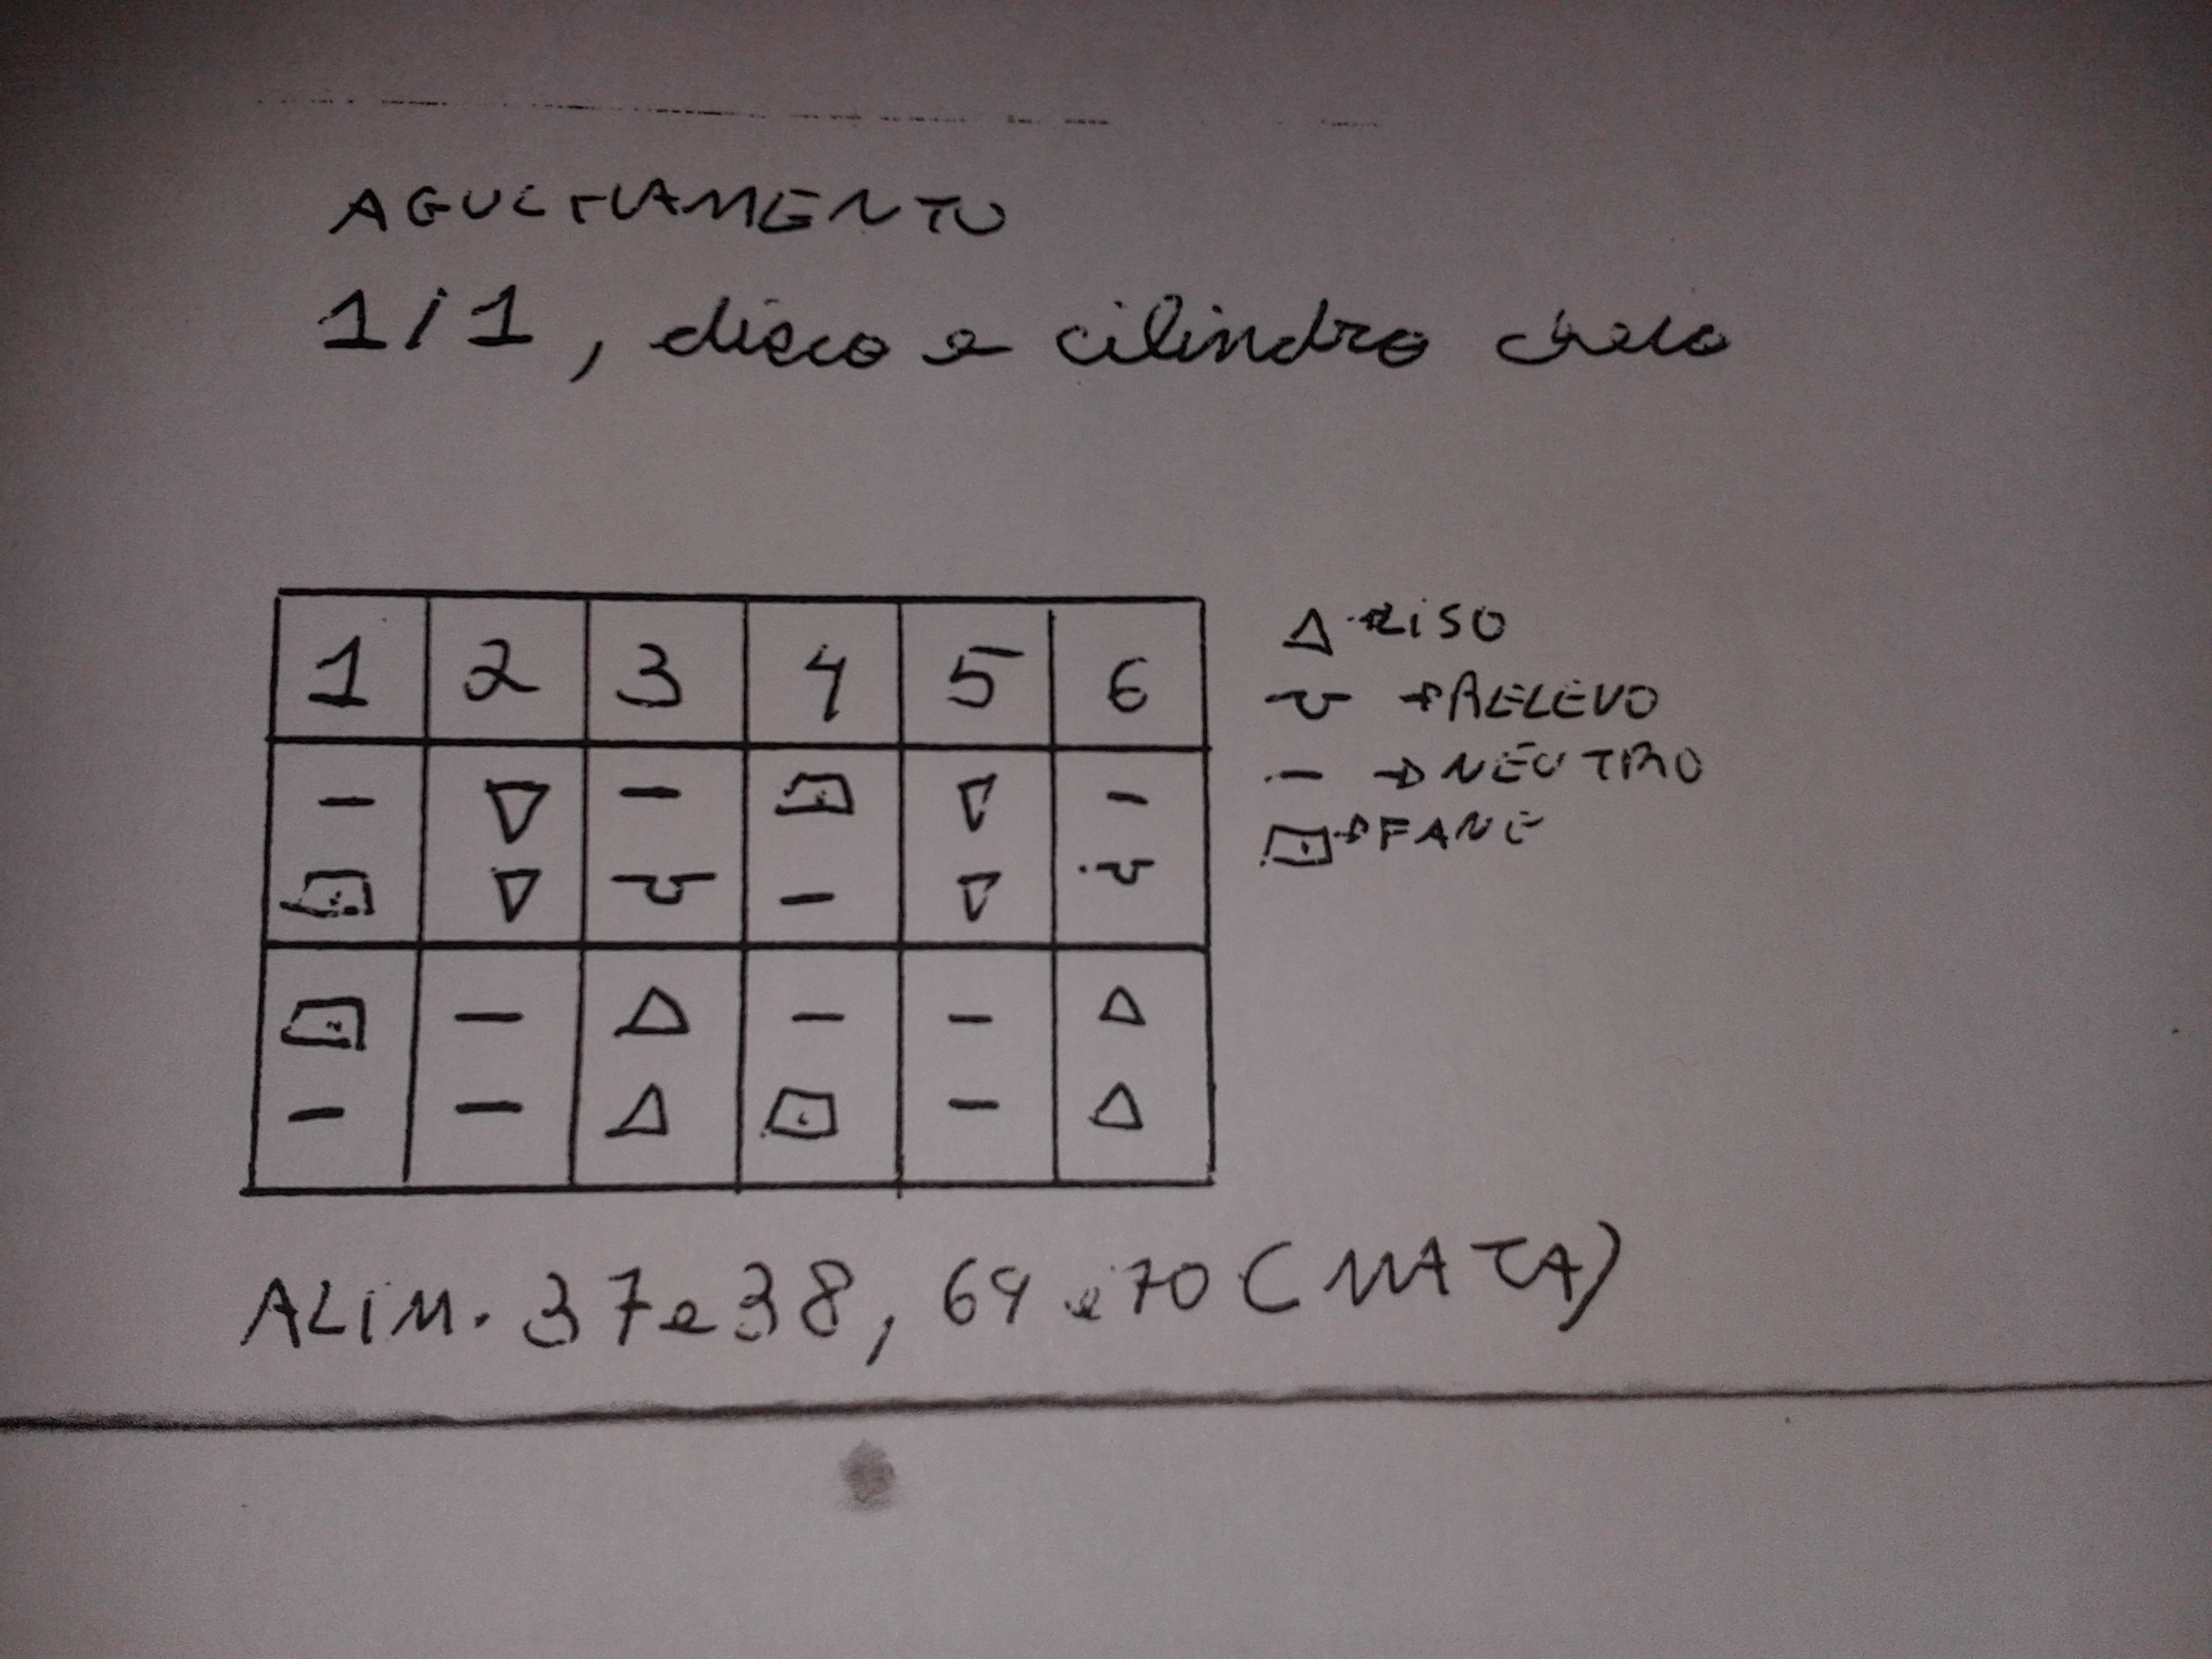 AGULHAMENTO
1/1, disco e cilindro cheio
1 2 3 4 5 6
- ▽ - ⏢ ▽ -
⏢ ▽ ꪜ - ▽ ꪜ
⏢ - △ - - △
- - △ ⏢ - △
△ → LISO
ꪜ → RELEVO
- → NEUTRO
⏢ → FANE
ALIM. 37 e 38, 69 e 70 (MATA)